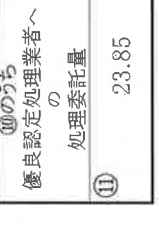 ⑩のうち
優良認定処理業者へ
の
処理委託量
⑪
23.85